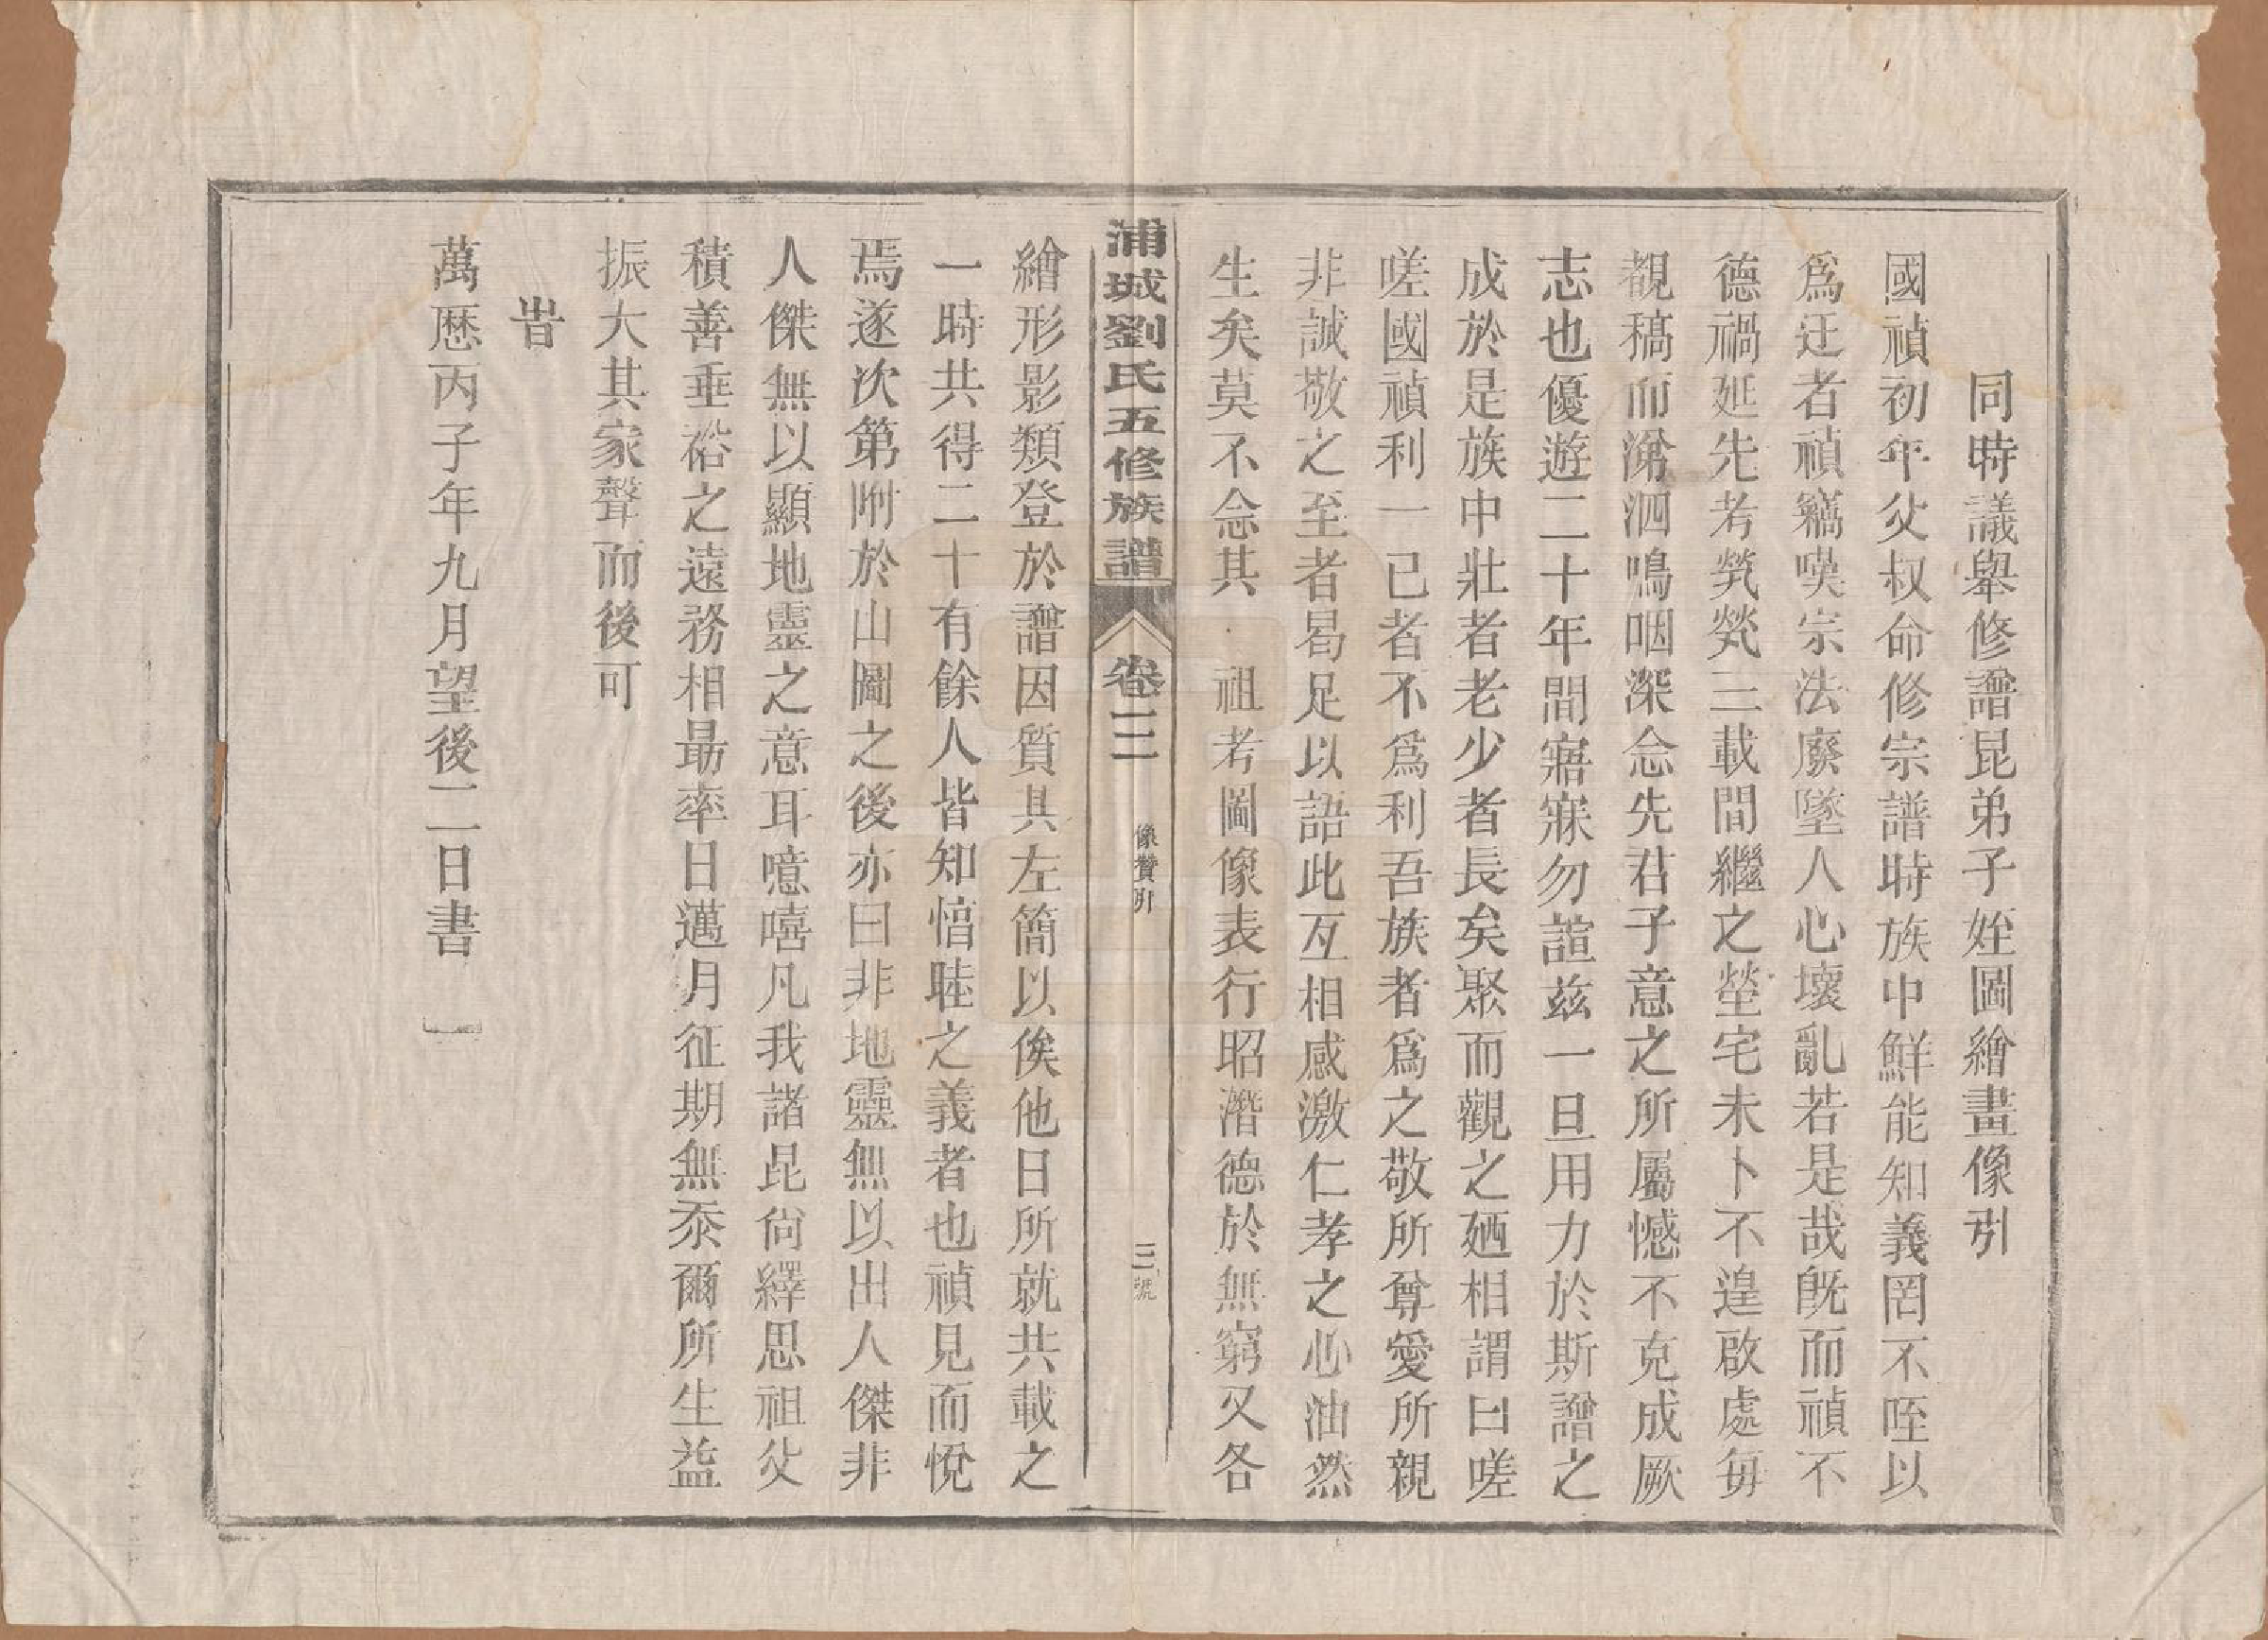 同時議舉修譜昆弟子姪圖繪畫像引
國禎初年父叔命修宗譜時族中鮮能知義罔不咥以
爲迂者禎竊嘆宗法廢墜人心壞亂若是哉旣而禎不
德禍延先考煢煢三載間繼之塋宅未卜不遑啟處毎
覩稿而涕泗嗚咽深念先君子意之所屬憾不克成厥
志也優遊二十年間寤寐勿諠兹一旦用力於斯譜之
成於是族中壯者老少者長矣聚而觀之廼相謂曰嗟
嗟國禎利一己者不爲利吾族者爲之敬所尊愛所親
非誠敬之至者曷足以語此互相感激仁孝之心油然
生矣莫不念其 祖考圖像表行昭潛德於無窮又各
浦城劉氏五修族譜 卷三 像贊引 三號
繪形影類登於譜因質其左簡以俟他日所就共載之
一時共得二十有餘人皆知惇睦之義者也禎見而悅
焉遂次第附於山圖之後亦曰非地靈無以出人傑非
人傑無以顯地靈之意耳噫嘻凡我諸昆尙繹思祖父
積善垂裕之遠務相朂率日邁月征期無忝爾所生益
振大其家聲而後可
旹
萬厯丙子年九月望後二日書